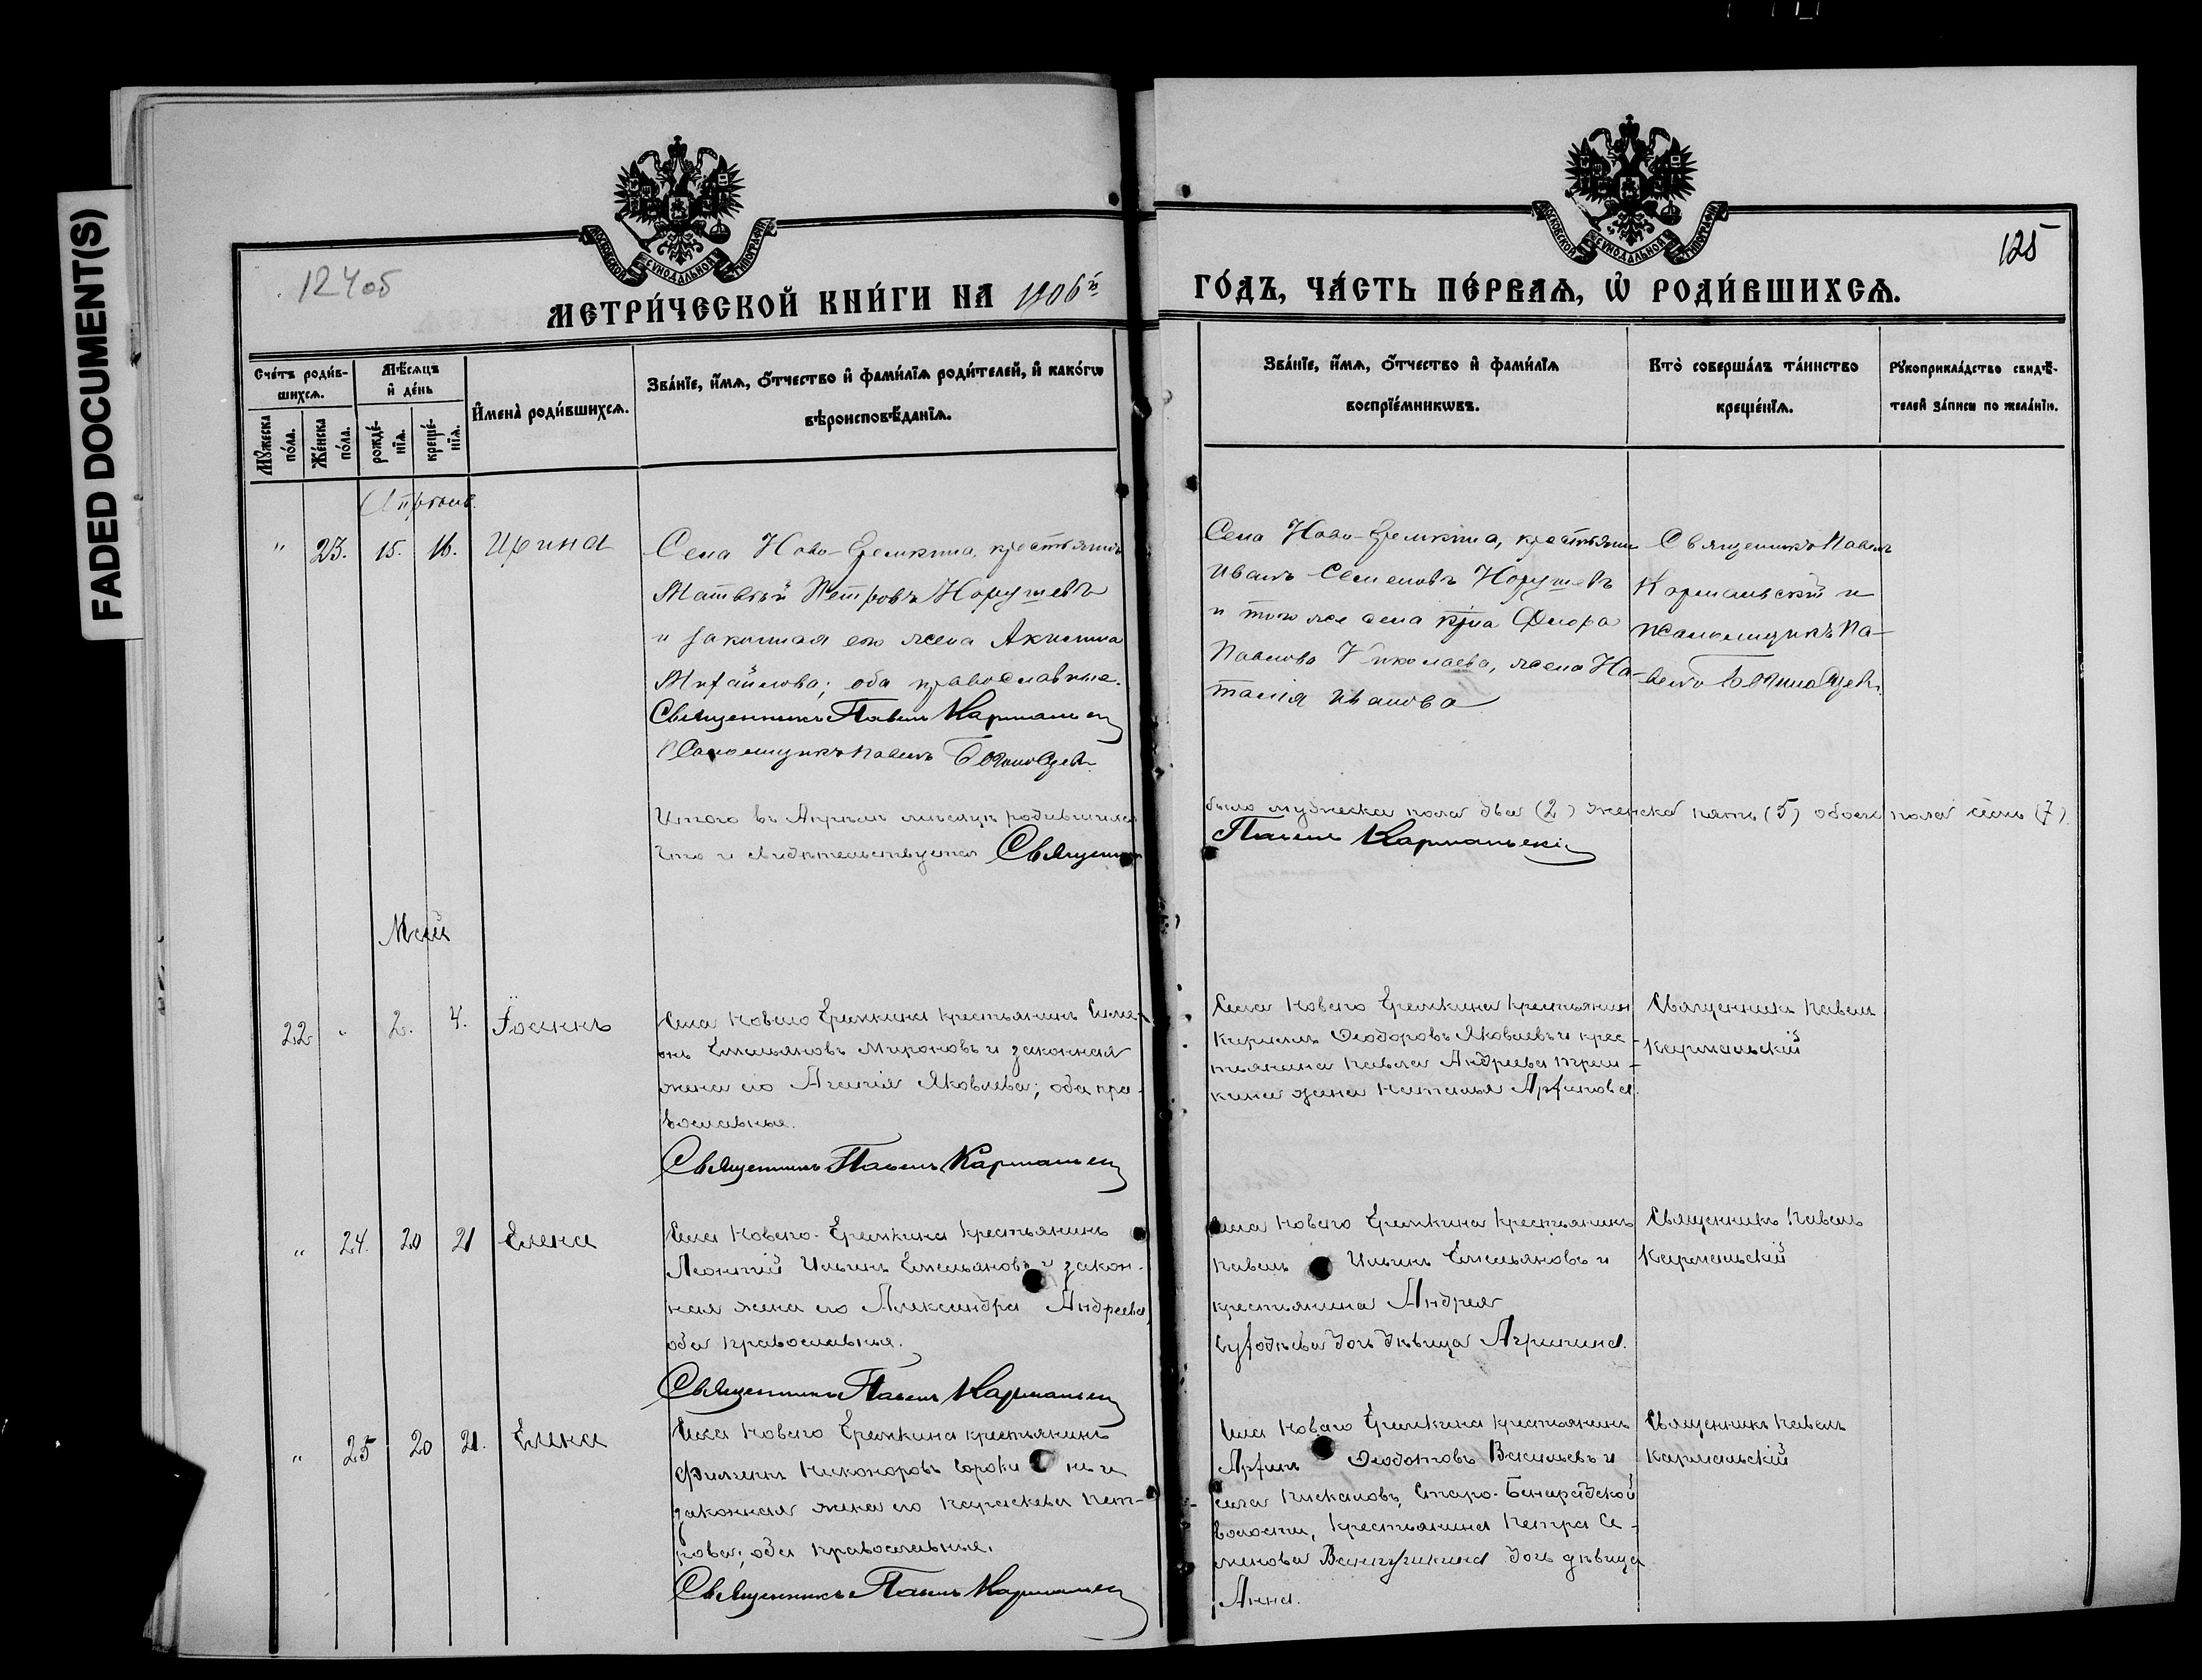 FADED DOCUMENT(S)
124об
125
МОСКОВСКОЙ СУНОДАЛЬНОЙ ТИПОГРАФІИ
МОСКОВСКОЙ СУНОДАЛЬНОЙ ТИПОГРАФІИ
МЕТРИ́ЧЕСКОЙ КНИ́ГИ НА 1906й ГО́ДЪ, ЧА́СТЬ ПЕ́РВАѦ, Ѡ҆ РОДИ́ВШИХСѦ.
Сче́тъ роди́в-
шихсѧ.
Мꙋ́жеска
по́ла.
Же́нска
по́ла.
Мѣ́сѧцъ
и҆ де́нь
рожде́-
нїѧ.
креще́-
нїѧ.
И҆мена̀ роди́вшихсѧ.
Зва́нїе, и҆́мѧ, ѻ҆́тчество и҆ фами́лїѧ роди́телей, и҆ како́гѡ
вѣроисповѣ́данїѧ.
Зва́нїе, и҆́мѧ, ѻ҆́тчество и҆ фами́лїѧ
воспрїе́мникѡвъ.
Кто̀ соверша́лъ та́инство
креще́нїѧ.
Рꙋкоприкла́дство свидѣ́-
телей за́писи по жела́нїю.
Апрѣль
" 23. 15. 16. Ирина
Села Ново-Еремкина, крестьянинъ
Матвѣй Петровъ Норушевъ
и законная его жена Акилина
Михайлова; оба православные.
Священникъ Павелъ Кармальск
Псаломщикъ Павелъ
Села Ново-Еремкина, крестьянинъ
Иванъ Семеновъ Норушевъ
и того же села кр҃на Флора
Павлова Николаева, жена На-
талія Иванова
Священникъ Павелъ
Кармальскій и
Псаломщикъ Па-
велъ
Итого въ Апрѣлѣ мѣсяцѣ родившихся
было мужеска пола два (2) женска пять (5) обоего пола семь (7).
Что и свидѣтельствуется Священникъ
Павелъ Кармальскій
Май
22 " 2. 4. Іоаннъ
Села Новаго Еремкина крестьянинъ Симе-
онъ Емельяновъ Мироновъ и законная
жена его Агапія Яковлева; оба пра-
вославные.
Священникъ Павелъ Кармальск
Села Новаго Еремкина крестьянинъ
Кириллъ Ѳеодоровъ Яковлевъ и крес-
тьянина Павла Андреева
жена Наталья Архипова.
Священникъ Павелъ
Кармальскій
" 24. 20 21 Елена
Села Новаго-Еремкина крестьянинъ
Леонтій Ильинъ Емельяновъ и закон-
ная жена его Александра Андреева,
оба православные.
Священникъ Павелъ Кармальск
Села Новаго Еремкина крестьянинъ
Павелъ Ильинъ Емельяновъ и
крестьянина Андрея
дочь дѣвица Агрипина.
Священникъ Павелъ
Кармальскій
" 25 20 21. Елена
Села Новаго Еремкина крестьянинъ
Филиппъ Никоноровъ Сорокинъ и
законная жена его Параскева Пет-
рова; оба православные.
Священникъ Павелъ Кармальск
Села Новаго Еремкина крестьянинъ
Архипъ Ѳеодотовъ Васильевъ и
села Пискаловъ, Старо-Бинарадской
волости, крестьянина Петра Се-
менова дочь дѣвица
Анна.
Священникъ Павелъ
Кармальскій